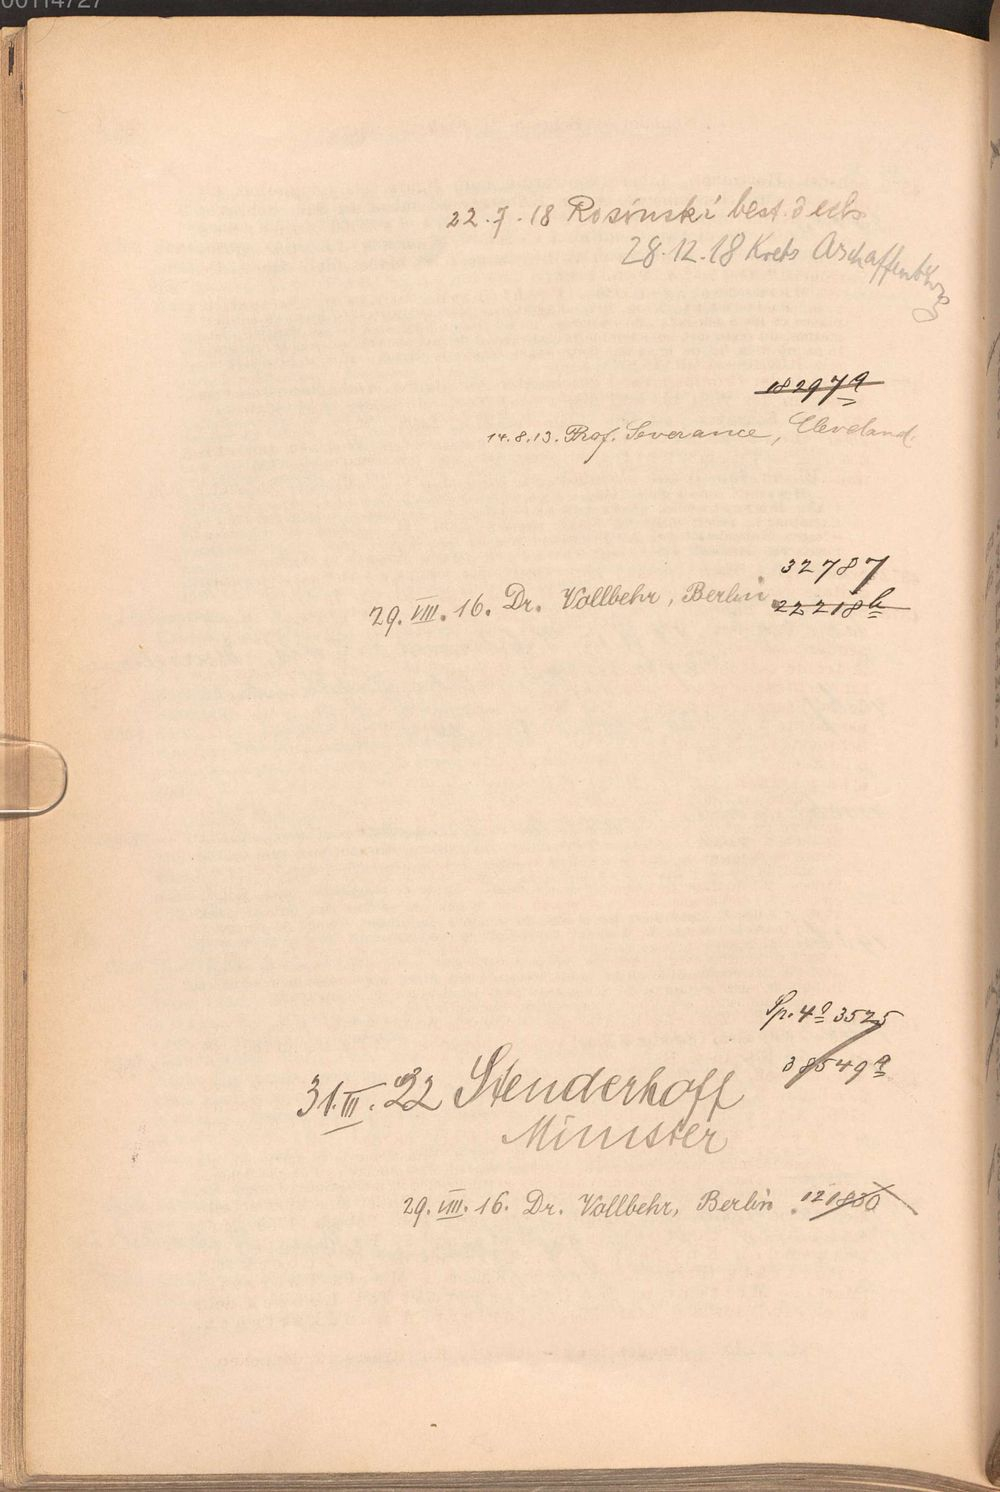 00114727
22.7.18 Rosinski best.
28.12.18 Krebs Aschaffenburg
18297q
14.8.13. Prof. Severance, Cleveland.
32787
29.VIII.16. Dr. Vollbehr, Berlin. 22218h
Sp. 4º 3525
38549q
31.III.22 Stenderhoff
Münster
29.VIII.16. Dr. Vollbehr, Berlin.